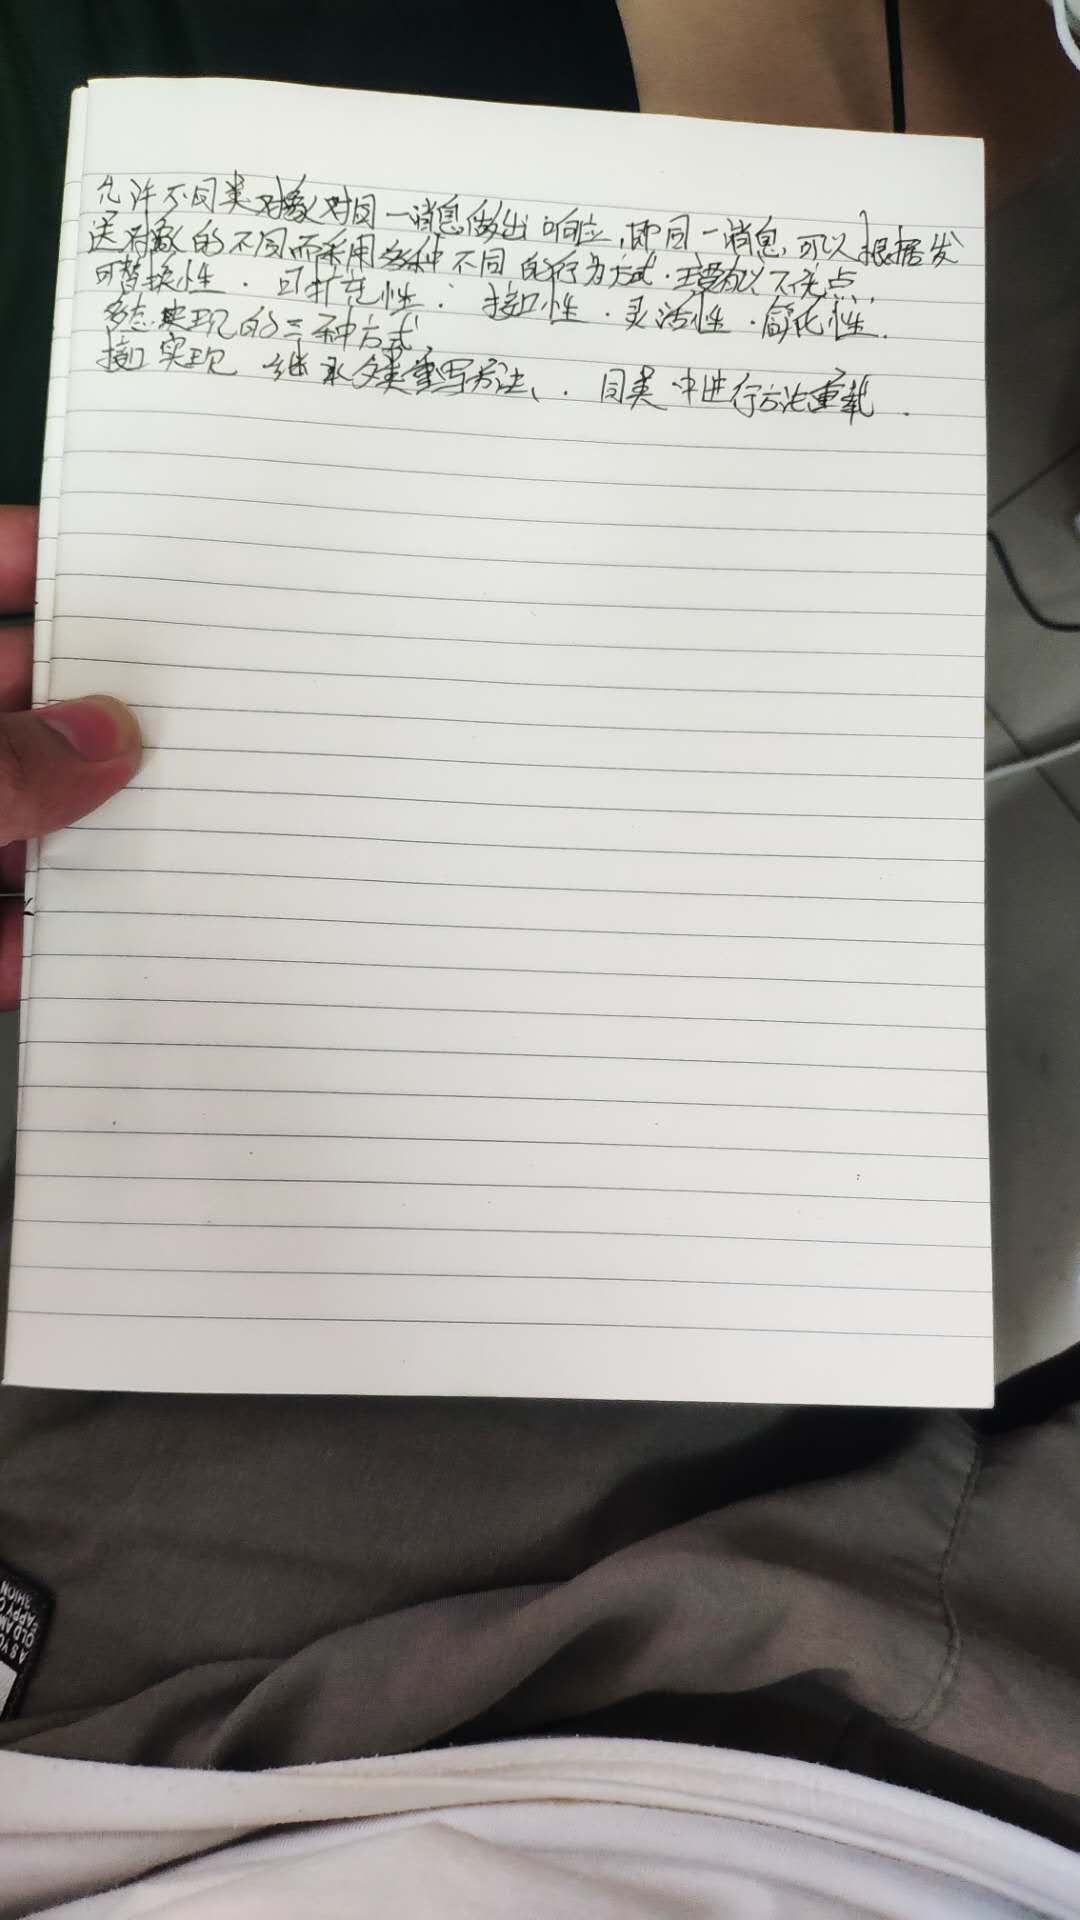 允许不同类对象对同一消息做出响应,即同一消息,可以根据发
送对象的不同而采用多种不同的行为方式.主要有以下优点
可替换性.可扩充性.接口性.灵活性.简化性.
多态实现的三种方式,
接口实现 继承父类重写方法、.同类中进行方法重载.
AS YO
OLD AN
FAPPY
SHION